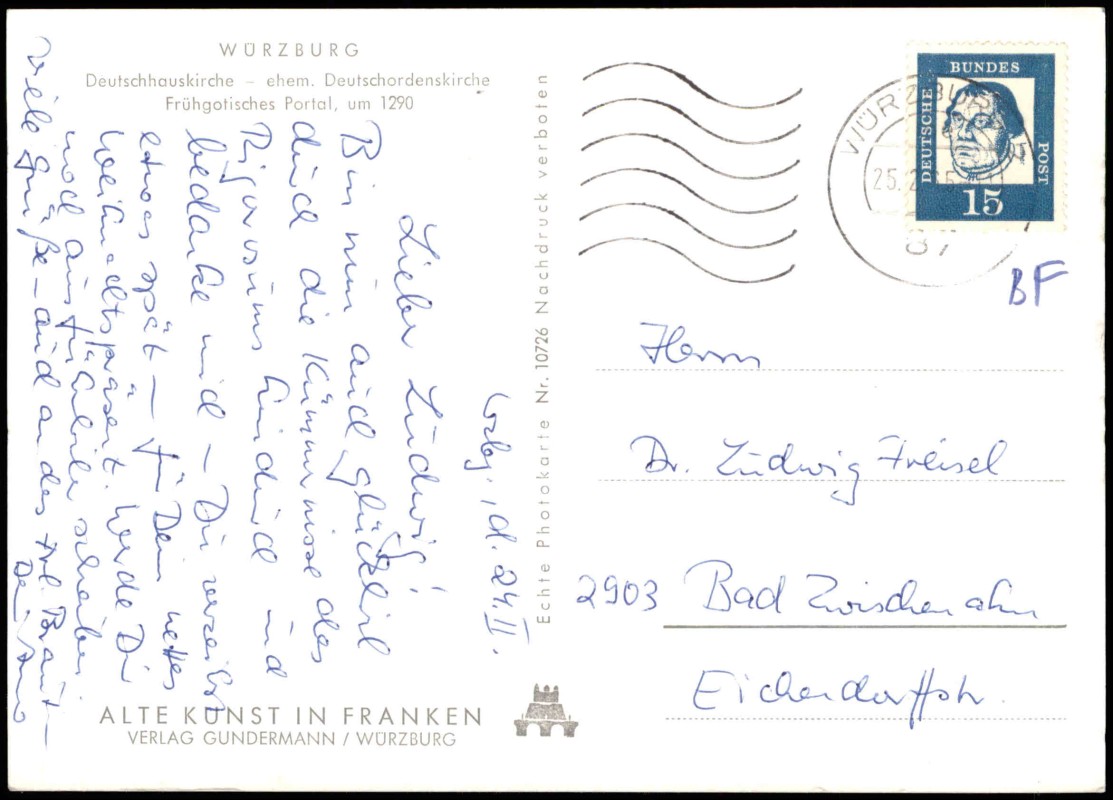 WÜRZBURG
Deutschhauskirche – ehem. Deutschordenskirche
Frühgotisches Portal, um 1290
Wzbg., d. 24. II.
Lieber Ludwig!
Bin nun auch glücklich
durch die Kümmernisse des
Rigorosums hindurch und
bedanke mich – Du verzeihst
etwas spät – für Dein nettes
Weihnachtspräsent. Werde Dir
noch ausführlich schreiben.
Viele Grüße – auch an das Frl. Braut –
Dein
ALTE KUNST IN FRANKEN
VERLAG GUNDERMANN / WÜRZBURG
Echte Photokarte Nr. 10726 Nachdruck verboten
WÜRZBURG
25.2.
87
DEUTSCHE
BUNDES
POST
15
BF
Herrn
Dr. Ludwig Freisel
2903 Bad Zwischenahn
Eichendorffstr.